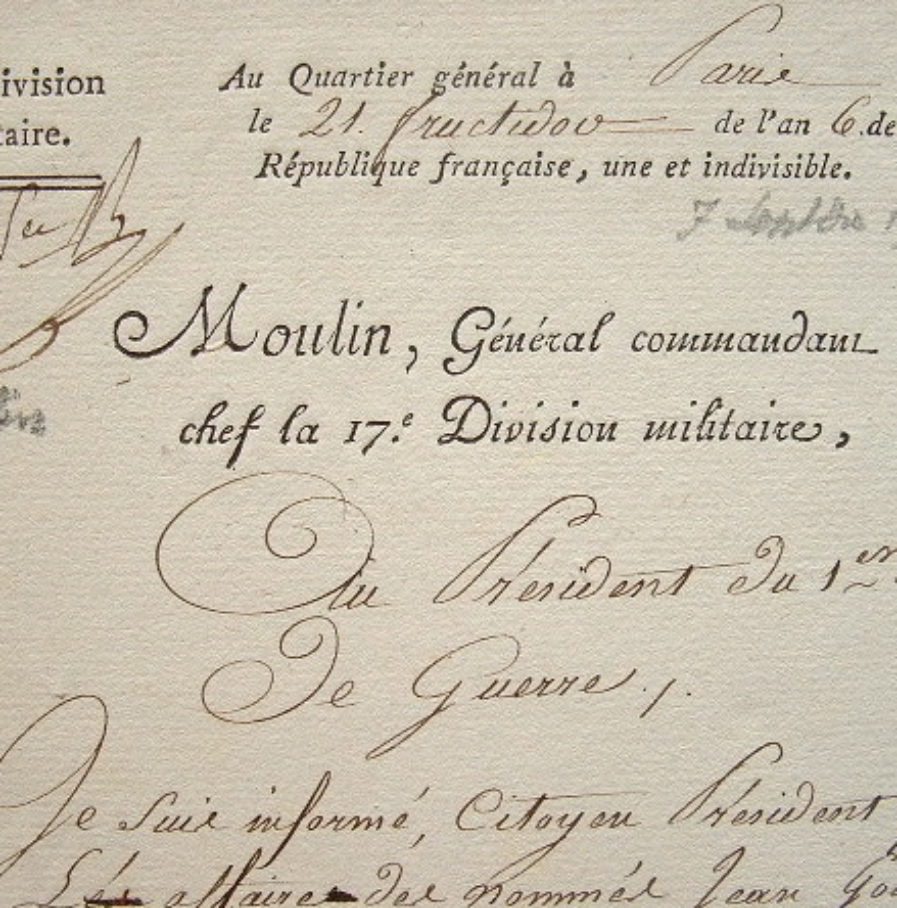 ivision
taire.
Au Quartier général à Paris
le 21. fructidor de l'an 6. de
République française, une et indivisible.
7
Moulin, Général commandant
chef la 17.e Division militaire,
Au Président du 1er
De Guerre,
Je suis informé, Citoyen Président
Les affaires des nommés Jean